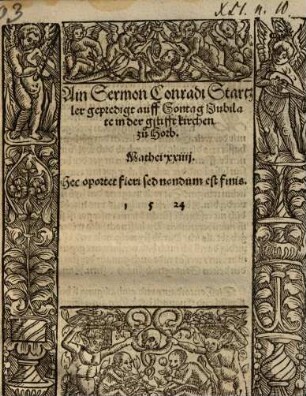 03
XLI. n. 10
Ain Sermon Conradi Startz
ler geprediget auff Sontag Jubila
te in der gstifft kirchen
zů Horb.
Mathei xxiiij.
Hec oportet fieri sed nondum est finis.
1 5 24